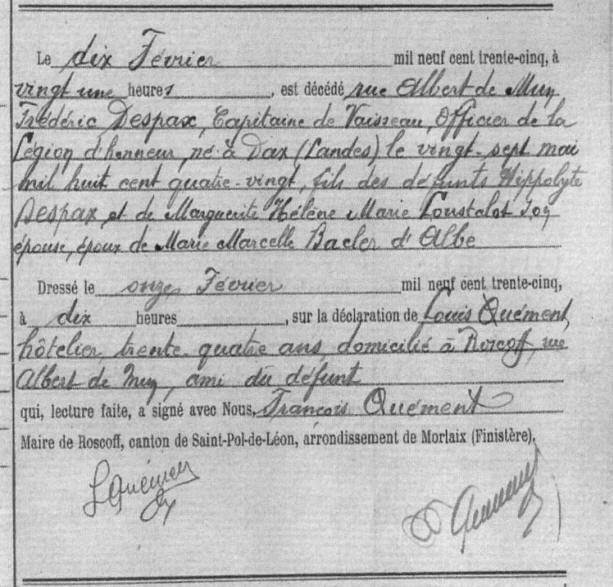 Le dix Février mil neuf cent trente-cinq, à
vingt une heures, est décédé rue Albert de Mun
Frédéric Despax, Capitaine de Vaisseau, Officier de la
Légion d'honneur, né à Dax (Landes) le vingt-sept mai
mil huit cent quatre-vingt, fils des défunts Hippolyte
Despax et de Marguerite Hélène Marie Loustalot son
épouse, époux de Marie Marcelle Bacler d'Albe
Dressé le onze Février mil neuf cent trente-cinq,
à dix heures, sur la déclaration de Louis Quément,
hôtelier, trente-quatre ans, domicilié à Roscoff, rue
Albert de Mun, ami du défunt
qui, lecture faite, a signé avec Nous, François Quément
Maire de Roscoff, canton de Saint-Pol-de-Léon, arrondissement de Morlaix (Finistère).
LQuément